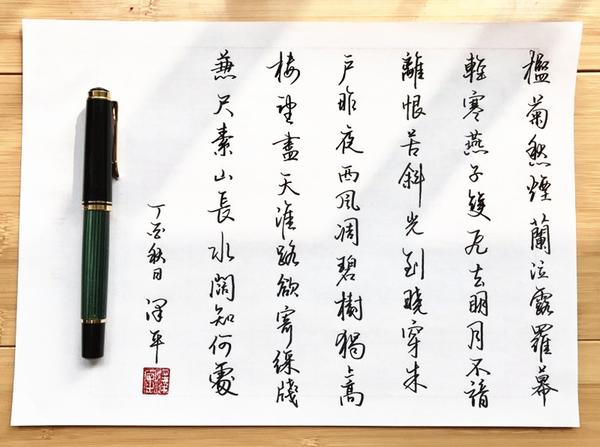 檻菊愁煙蘭泣露羅幕
輕寒燕子雙飛去明月不諳
離恨苦斜光到曉穿朱
戶昨夜西風凋碧樹獨上高
樓望盡天涯路欲寄綵牋
兼尺素山長水闊知何處
丁酉秋日